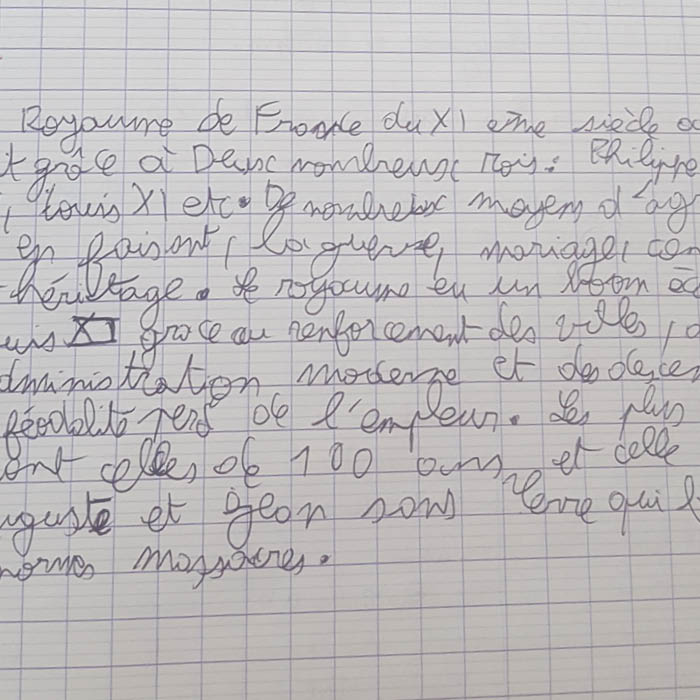 Royaume de France du XI ème siècle
grâce à Deux nombreux rois : Philippe
, Louis XI etc. De nombreux moyens d'ag
en faisant, la guerre, mariage, con
héritage. Le royaume eu un boom éc
uis XI grace au renforcement des villes,
dministration moderne et des déces
féodalité perd de l'empleur. Les plus
ont celles de 100 ans et celle
uguste et Jean sans Terre qui
normes massacres.